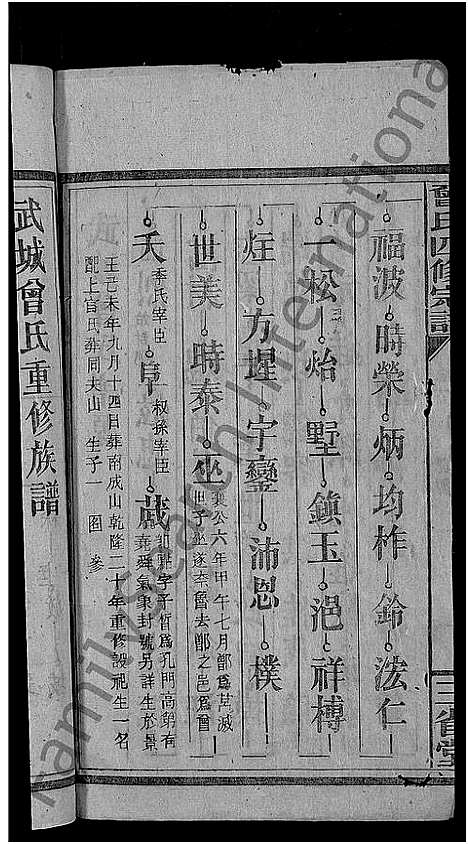 曾氏四修宗譜
三省堂
福波 時榮 炳 均柞 鈴 法仁
一松 炲 墅 鎮玉 浥 祥榑
炷 方墀 宇鑾 沛恩 樸
世美 時泰 巫 襄公六年甲午七月鄫爲莒滅
世子巫遂奔魯去鄫之邑爲曾
夭 季氏宰臣 阜 叔孫宰臣 蒧 卽點字子晳爲孔門高弟有
堯舜氣象封號另詳生於景
王己未年九月十四日葬南成山乾隆二十年重修設祀生一名
配上官氏葬同夫山 生子一 參
武城曾氏重修族譜
familysearch international